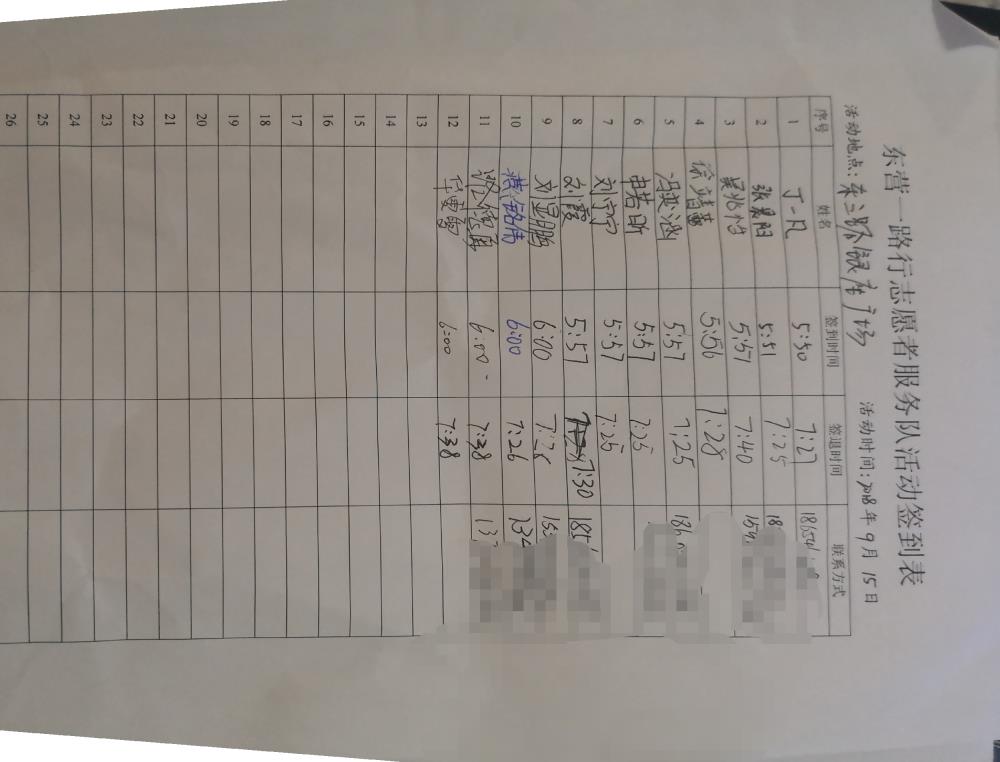 东营一路行志愿者服务队活动签到表
活动地点：东三路银座广场 活动时间：2018年9月15日
序号 姓名 签到时间 签退时间 联系方式
1 丁一凡 5:50 7:27 18654
2 张晨阳 5:51 7:25 18
3 吴兆怡 5:57 7:40 159
4 徐靖 5:56 7:28
5 冯奕涵 5:57 7:25 186
6 申若昕 5:57 7:25
7 刘宁宁 5:57 7:25
8 刘霞 5:57 7:30 185
9 刘显鹏 6:00 7:28 15
10 燕铭伟 6:00 7:26 134
11 6:00 7:38 137
12 6:00 7:38
13
14
15
16
17
18
19
20
21
22
23
24
25
26